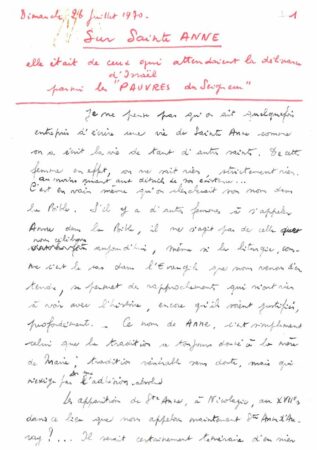 Dimanche 26 Juillet 1970. 1
Sur Sainte ANNE
elle était de ceux qui attendaient la délivrance
d'Israël
parmi les "PAUVRES du Seigneur"
Je ne pense pas qu'on ait quelquefois
entrepris d'écrire une vie de Sainte Anne comme
on a écrit la vie de tant d'autres saints. De cette
femme en effet, on ne sait rien, strictement rien.
au moins quant aux détails de son existence...
C'est en vain même qu'on chercherait son nom dans
la Bible. S'il y a d'autres femmes à s'appeler
Anne dans la Bible, il ne s'agit pas de celle que
nous célébrons
aujourd'hui, même si la liturgie, com-
me c'est le cas dans l'Evangile que nous venons d'en
tendre, se permet de rapprochements qui n'ont rien
à voir avec l'histoire, encore qu'ils soient justifiés,
profondément. _ Ce nom de ANNE, c'est simplement
celui que la tradition a toujours donné à la mère
de Marie; tradition vénérable sans doute, mais qui
n'exige pas l'adhésion absolue
Les apparitions de Ste Anne, à Nicolazic, au XVIIe s,
dans ce lieu que nous appelons maintenant Ste Anne d'Au-
ray?... Il serait certainement téméraire d'en nier